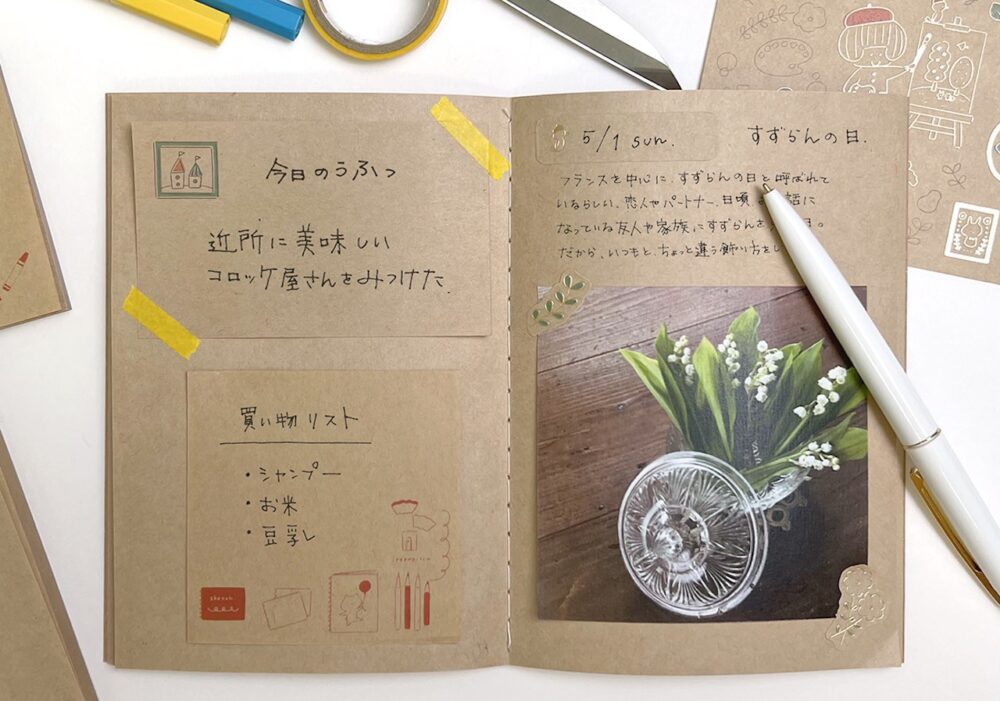 今日のうふっ
近所に美味しい
コロッケ屋さんをみつけた.
買い物リスト
・シャンプー
・お米
・豆乳
5/1 sun.
すずらんの日.
フランスを中心に、すずらんの日と呼ばれて
いるらしい。恋人やパートナー、日頃 話に
なっている友人や家族にすずらんを 日。
だから、いつもと、ちょっと違う飾り方をし